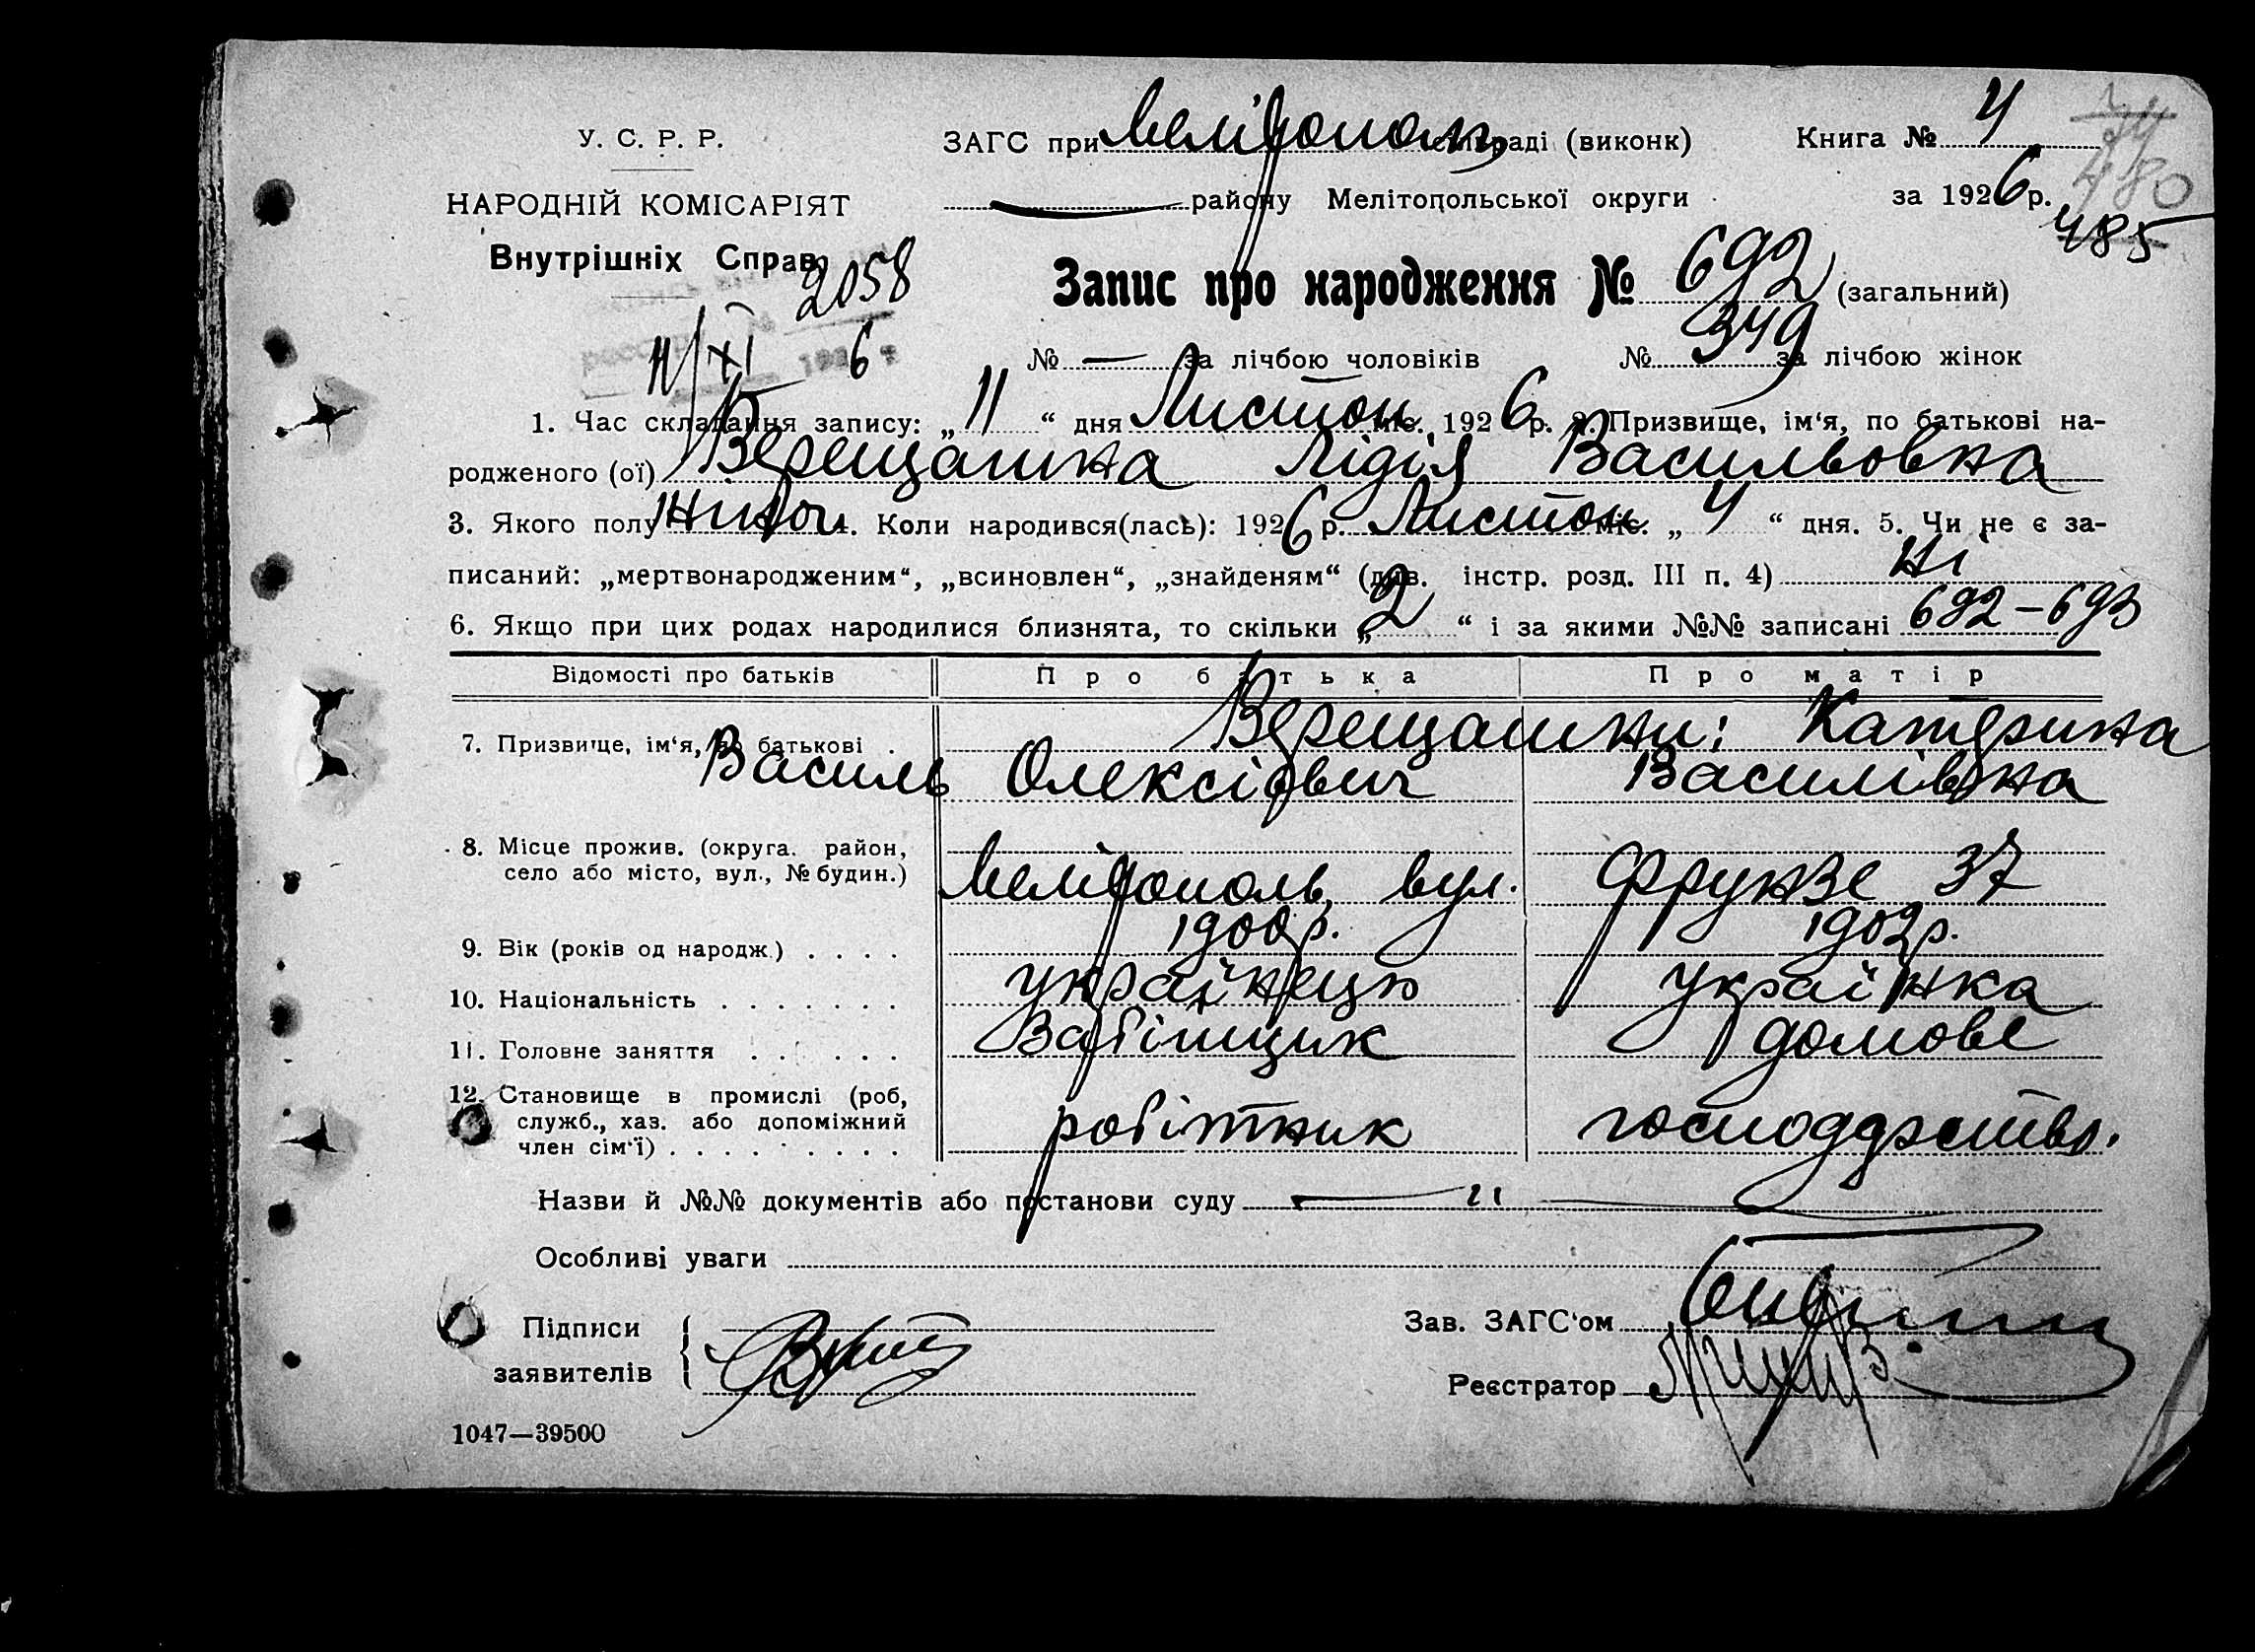 У. С. Р. Р.
НАРОДНІЙ КОМІСАРІЯТ
Внутрішніх Справ
2058
11/XI 1926
ЗАГС при Мелітополь раді (виконк)
— району Мелітопольської округи
Книга № 4
за 1926 р.
480
485
Запис про народження № 692 (загальний)
№ — за лічбою чоловіків № 349 за лічбою жінок
1. Час складання запису: „11“ дня Листоп. міс. 1926 р. 2. Призвище, ім‘я, по батькові на-
родженого (ої) Верещагина Лідія Васильовна
3. Якого полу жіноч. 4. Коли народився(лась): 1926 р. Листоп. міс. „4“ дня. 5. Чи не є за-
писаний: „мертвонародженим“, „всиновлен“, „знайденям“ (див. інстр. розд. III п. 4) Ні
6. Якщо при цих родах народилися близнята, то скільки „2“ і за якими №№ записані 692–693
Відомості про батьків Про батька Про матір
7. Призвище, ім‘я, по батькові . Верещагини: Катерина
Василь Олексієвич Василівна
8. Місце прожив. (округа. район,
село або місто, вул., № будин.) Мелітополь, вул. Фрунзе 37
9. Вік (років од народж.) . . . . 1900р. 1902р.
10. Національність . . . . . . . українець українка
11. Головне заняття . . . . . . домове
12. Становище в промислі (роб,
служб., хаз. або допоміжний
член сім‘ї) . . . . . . . . . робітник господарство.
Назви й №№ документів або постанови суду — „ —
Особливі уваги
Підписи
заявителів
Зав. ЗАГС‘ом
Реєстратор
1047—39500